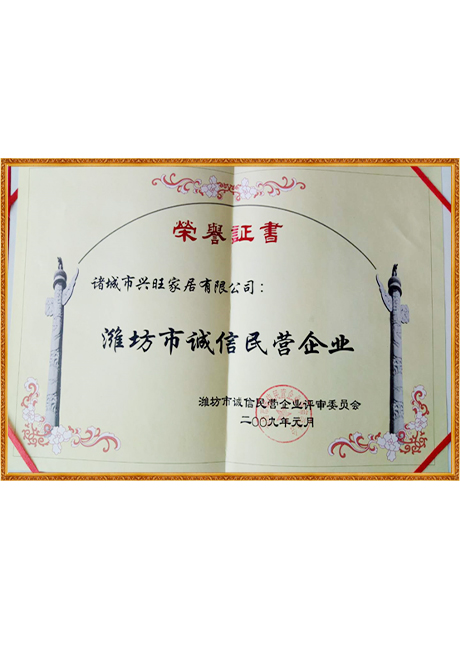 榮譽証書
诸城市兴旺家居有限公司：
潍坊市诚信民营企业
潍坊市诚信民营企业评审委员会
二〇〇九年元月